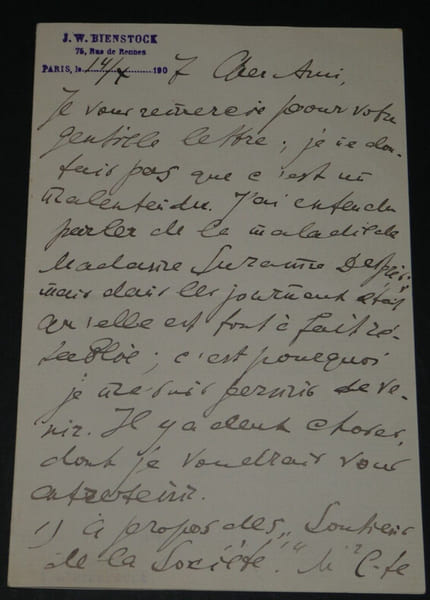 J. W. BIENSTOCK
75, Rue de Rennes
PARIS, le 14/X 190 7 Cher Ami,
Je vous remercie pour votre
gentille lettre ; je ne dou-
tais pas que c'est un
malentendu. J'ai entendu
parler de la maladie de
Madame Suzanne Desprès
mais dans les journaux était
qu'elle est tout à fait ré-
tablie ; c'est pourquoi
je me suis permis de ve-
nir. Il y a deux choses,
dont je voudrais vous
entretenir.
1) à propos des „ Soutiens
de la Société." M